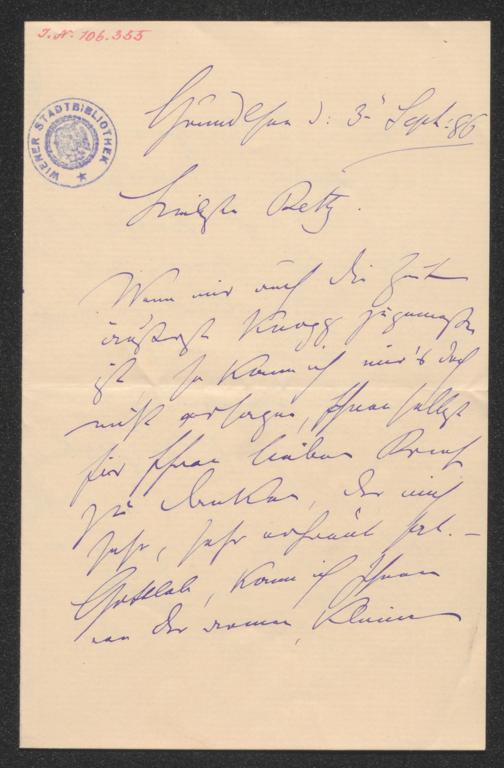 I. N. 106.355
WIENER STADTBIBLIOTHEK
Grundlsee d: 3. Sept: 86
Liebste Betty.
Wenn mir auch die Zeit
äußerst knapp zugemessen
ist, so kann ich mir's doch
nicht versagen, Ihnen selbst
für Ihren lieben Brief
zu danken, der mich
sehr, sehr erfreut hat. –
Gottlob, kann ich Ihnen
von der armen, Kleinen